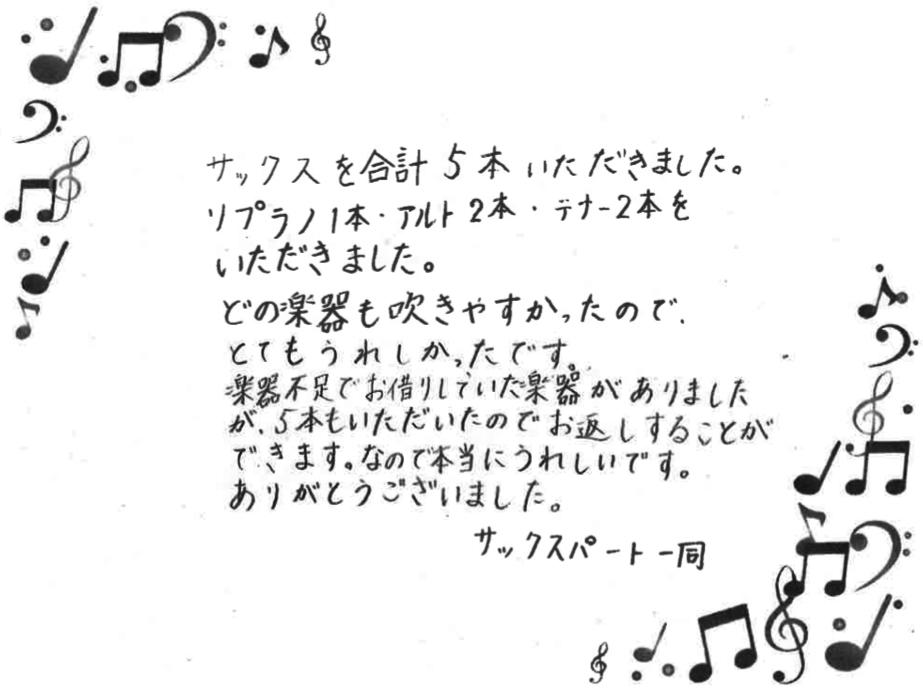 サックスを合計5本いただきました。
ソプラノ1本・アルト2本・テナー2本を
いただきました。
どの楽器も吹きやすかったので、
とてもうれしかったです。
楽器不足でお借りしていた楽器がありました
が、5本もいただいたのでお返しすることが
できます。なので本当にうれしいです。
ありがとうございました。
サックスパート一同